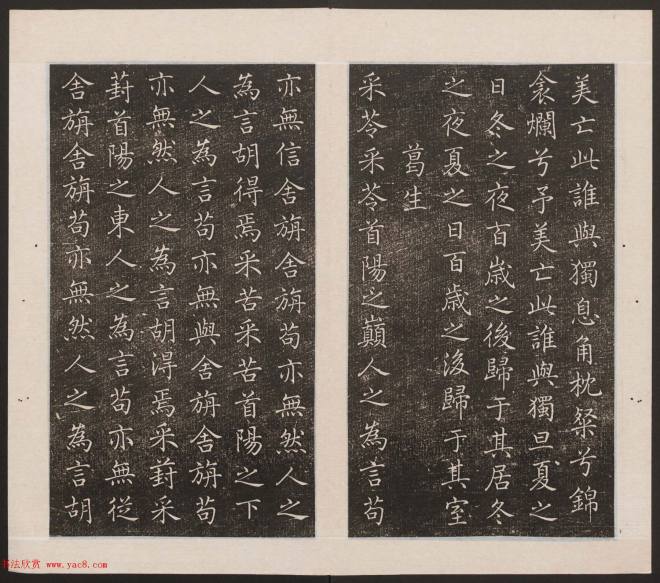 美亡此誰與獨息角枕粲兮錦
衾爛兮予美亡此誰與獨旦夏之
日冬之夜百歲之後歸于其居冬
之夜夏之日百歲之後歸于其室
葛生
采苓采苓首陽之巔人之為言苟
亦無信舍旃舍旃苟亦無然人之
為言胡得焉采苦采苦首陽之下
人之為言苟亦無與舍旃舍旃苟
亦無然人之為言胡得焉采葑采
葑首陽之東人之為言苟亦無從
舍旃舍旃苟亦無然人之為言胡
书法欣赏 www.yac8.com